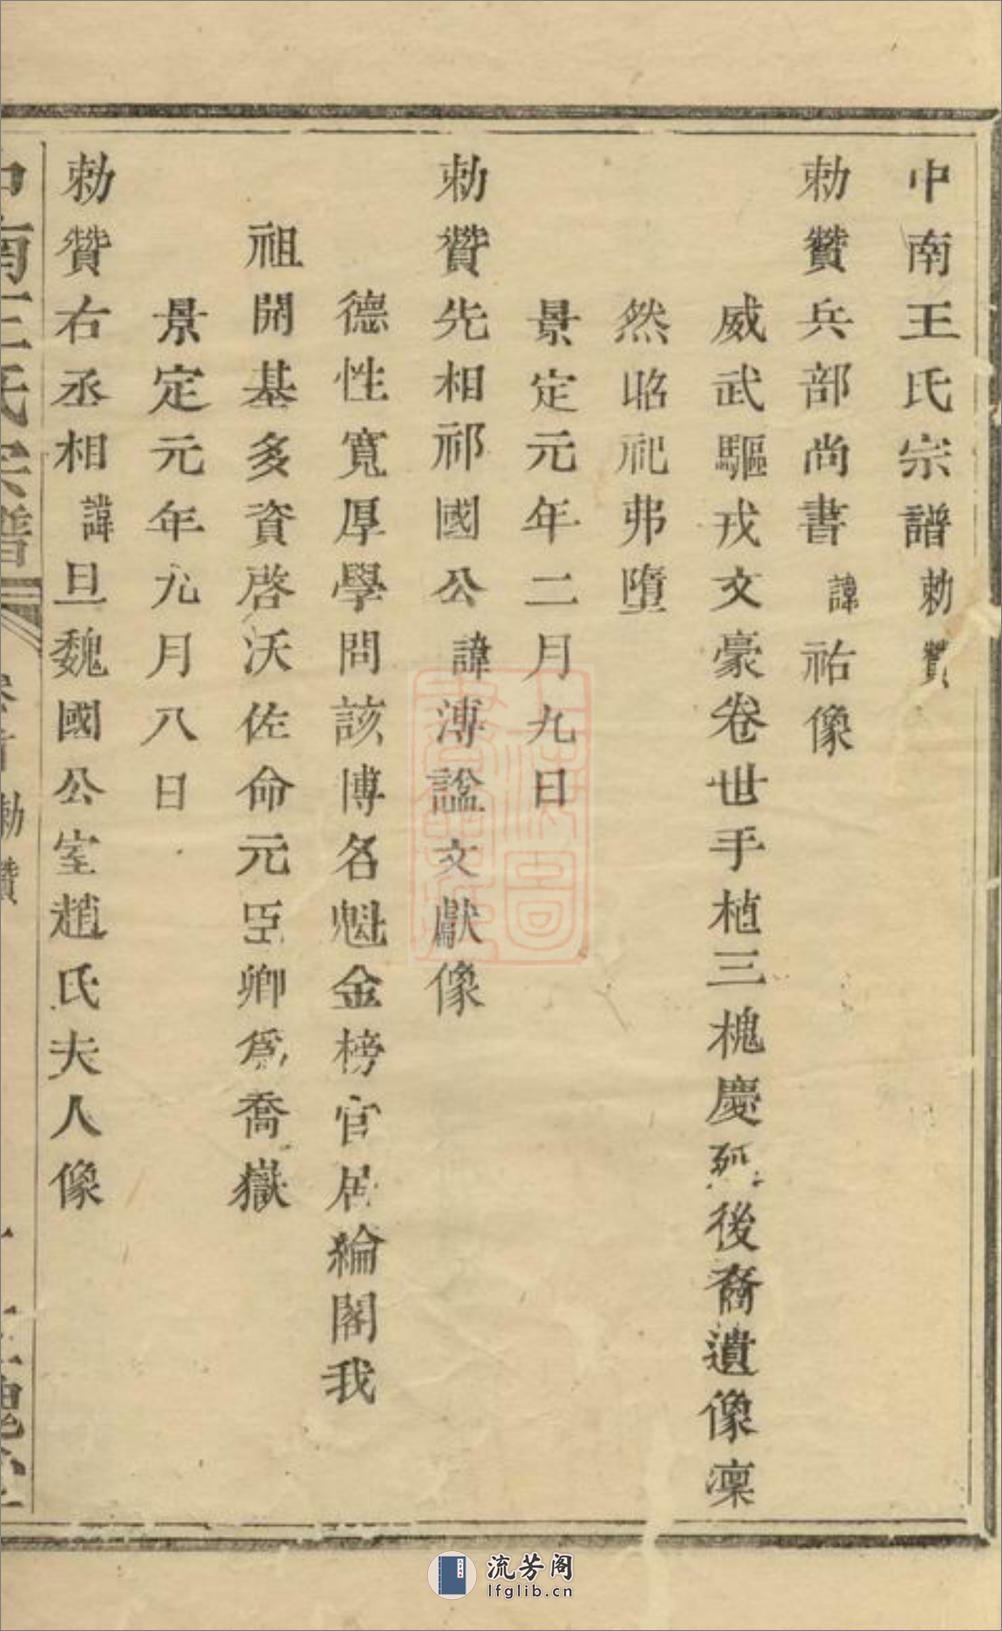 中南王氏宗譜勅贊
勅贊兵部尚書諱祐像
威武驅戎文豪卷世手植三槐慶延後裔遺像凜
然昭祀弗墮
景定元年二月九日
勅贊先相祁國公諱溥謚文獻像
德性寬厚學問該博名魁金榜官居綸閣我
祖開基多資啓沃佐命元臣卿爲喬嶽
景定元年九月八日
勅贊右丞相諱旦魏國公室趙氏夫人像
中南王氏宗譜 卷首 勅贊
流芳阁
lfglib.cn